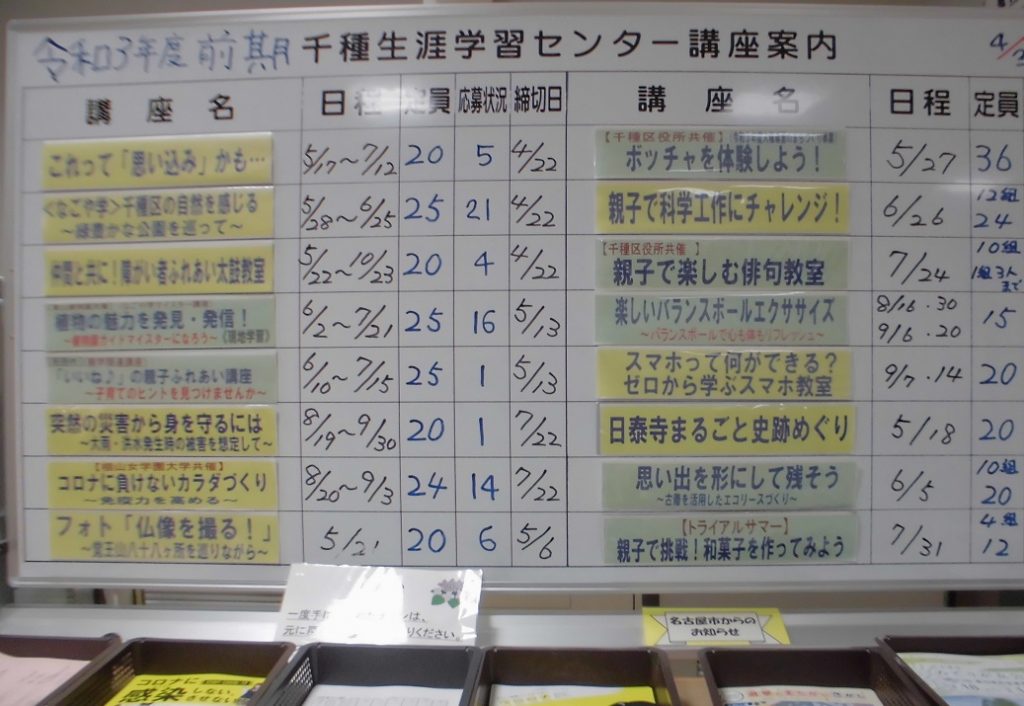 令和3年度 前期 千種生涯学習センター講座案内
講座名 日程 定員 応募状況 締切日
これって「思い込み」かも… 5/17～7/12 20 5 4/22
＜なごや学＞千種区の自然を感じる 5/28～6/25 25 21 4/22
～緑豊かな公園を巡って～
仲間と共に！障がい者ふれあい太鼓教室 5/22～10/23 20 4 4/22
植物の魅力を発見・発信！ 6/2～7/21 25 16 5/13
～植物園ガイドマイスターになろう～《現地学習》
「いいね♪」の親子ふれあい講座 6/10～7/15 25 1 5/13
～子育てのヒントを見つけませんか～
突然の災害から身を守るには 8/19～9/30 20 1 7/22
～大雨・洪水発生時の被害を想定して～
【椙山女学園大学共催】
コロナに負けないカラダづくり 8/20～9/3 24 14 7/22
～免疫力を高める～
フォト「仏像を撮る！」 5/21 20 6 5/6
～覚王山八十八ヶ所を巡りながら～
講座名 日程 定員
【千種区役所共催】
ボッチャを体験しよう！ 5/27 36
親子で科学工作にチャレンジ！ 6/26 12組 24
【千種区役所共催】
親子で楽しむ俳句教室 7/24 10組 1組3人まで
楽しいバランスボールエクササイズ 8/16・30 9/6・20 15
～バランスボールで心も体もリフレッシュ～
スマホって何ができる？ 9/7・14 20
ゼロから学ぶスマホ教室
日泰寺まるごと史跡めぐり 5/18 20
思い出を形にして残そう 6/5 10組 20
～古着を活用したエコリースづくり～
【トライアルサマー】
親子で挑戦！和菓子を作ってみよう 7/31 4組 12
一度手に
元に
ください。
名古屋市からの
お知らせ
コロナに
感染しない、
させない